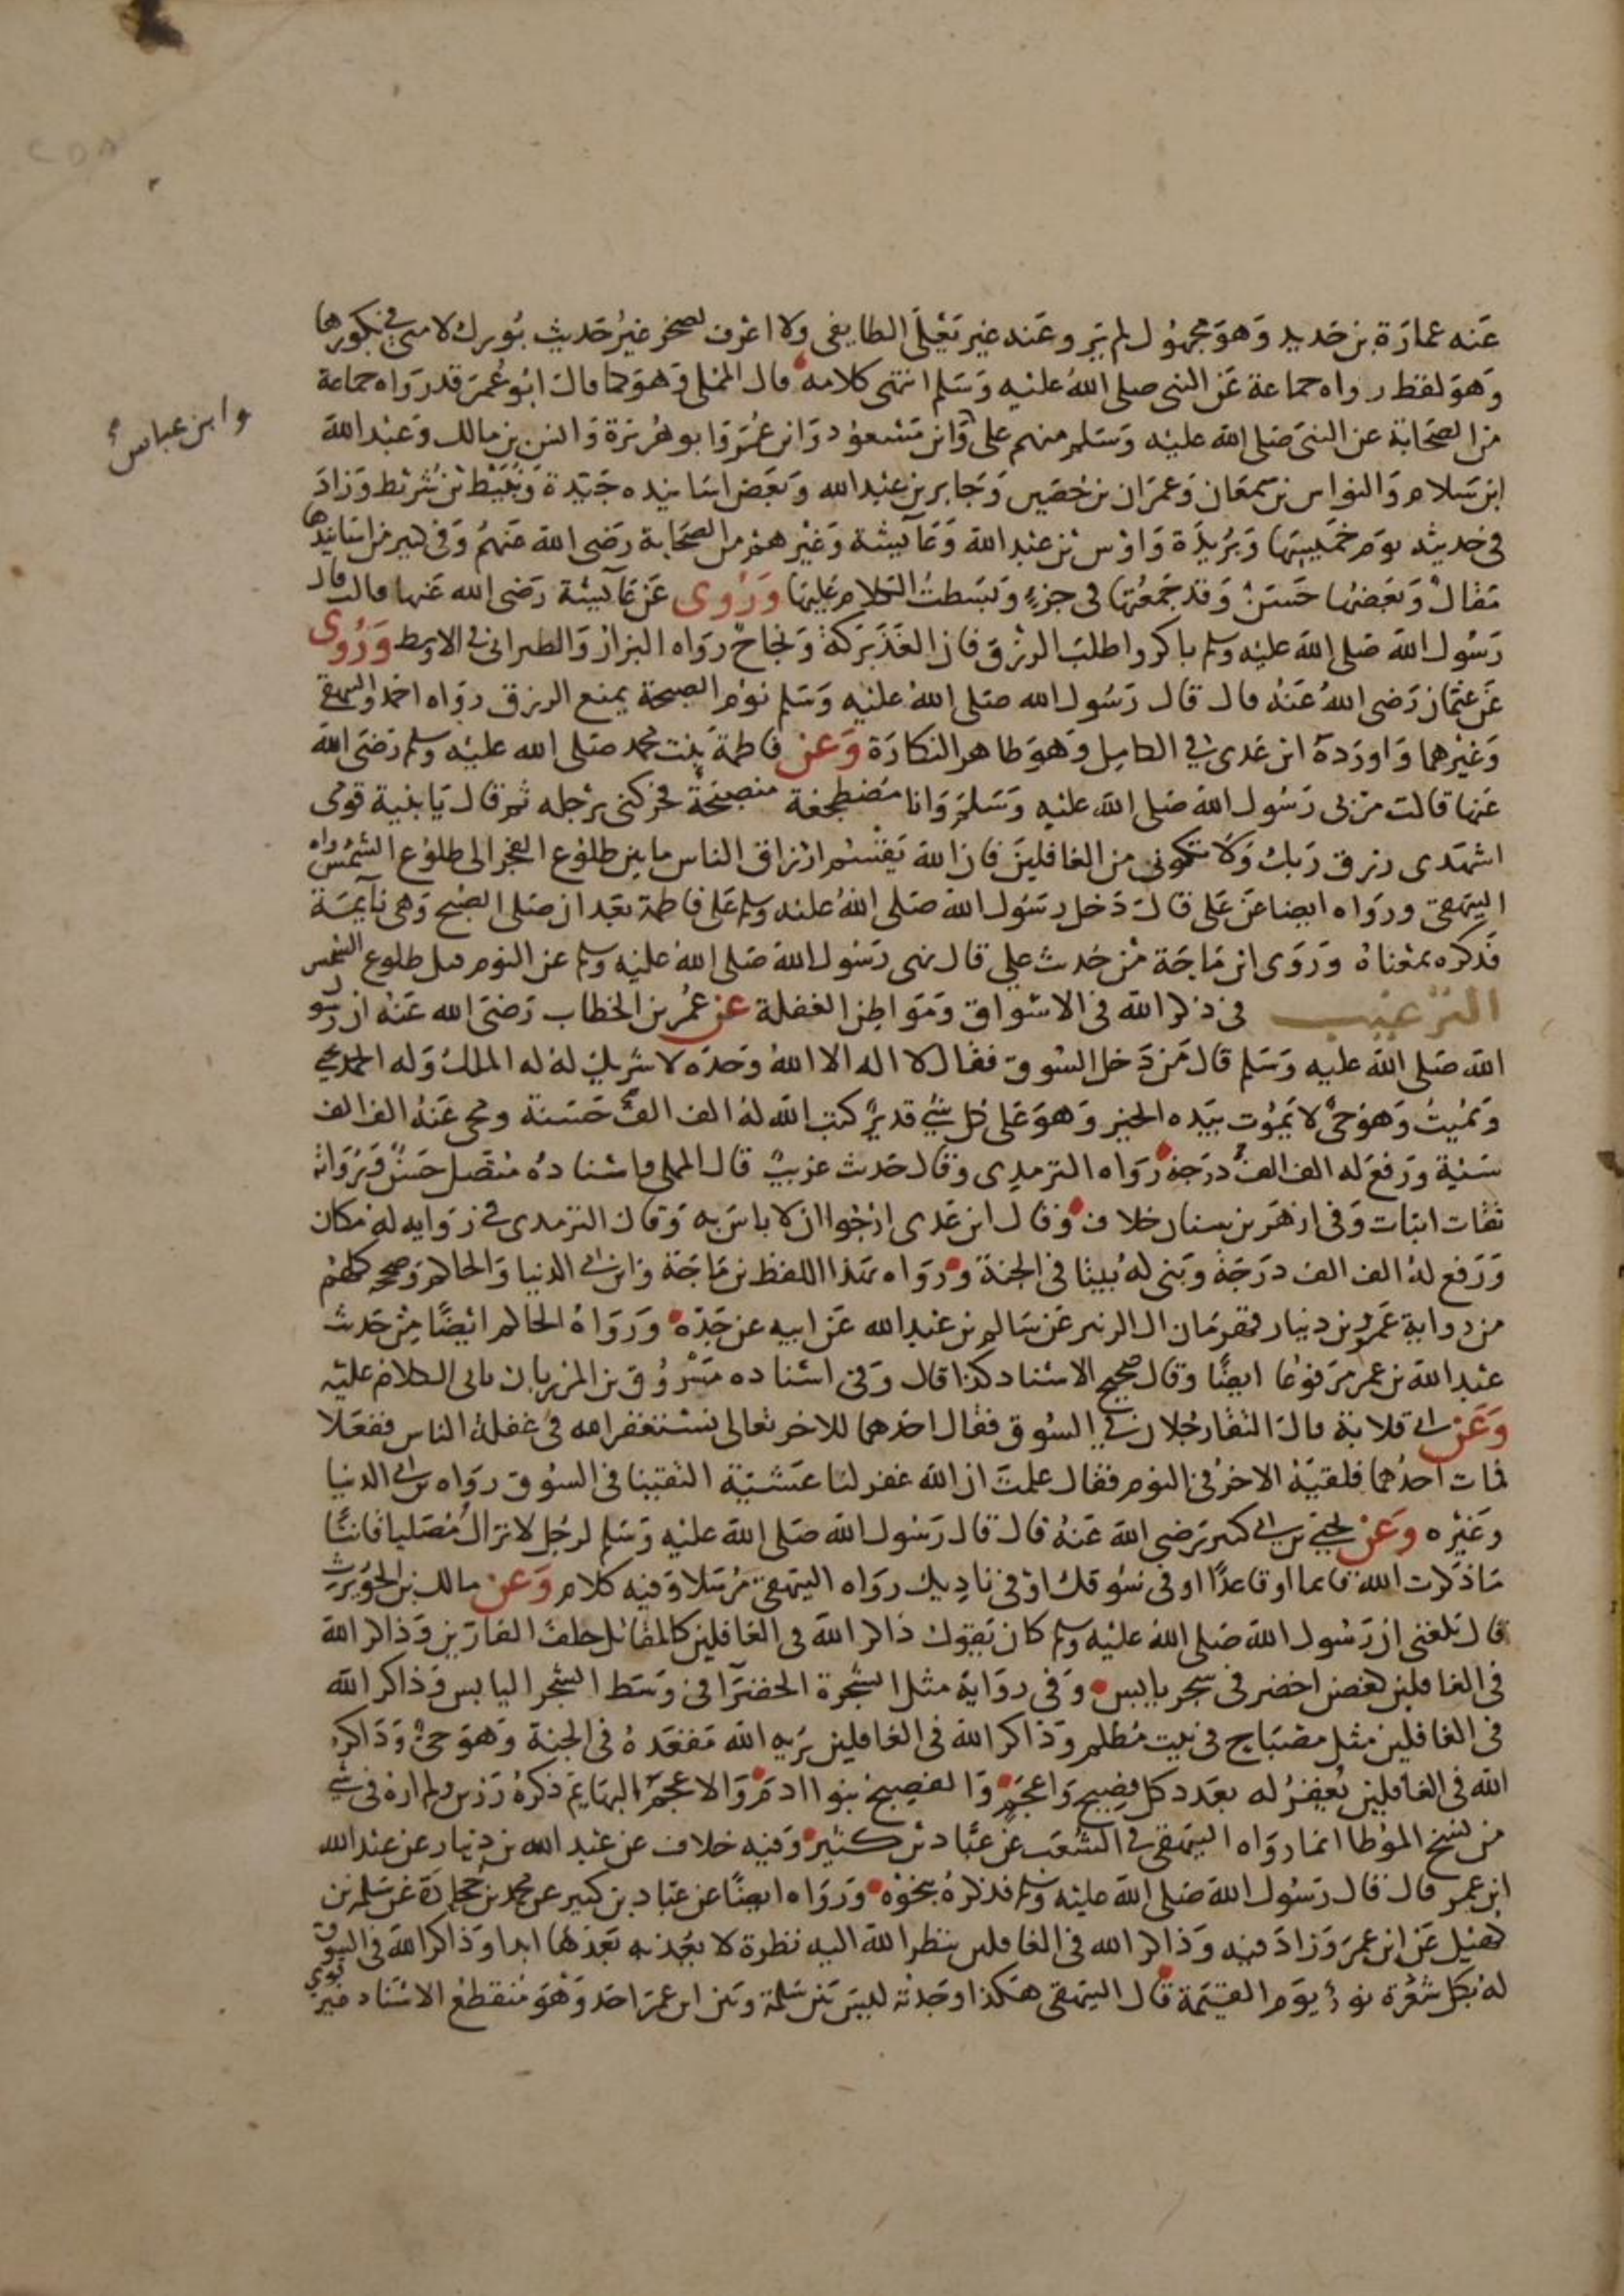 عنه عمارة بن حديد وهو مجهول لم يرو عنه غير يعلى الطايفى ولا اعرف لصخر غير حديث بورك لامتى في بكورها
وهو لفظ رواه جماعة عن النبى صلى الله عليه وسلم انتهى كلامه قال المملى وهو كما قال ابو عمر قد رواه جماعة
من الصحابة عن النبى صلى الله عليه وسلم منهم على وابن مسعود وابن عمر وابو هريرة وانس بن مالك وعبد الله
وابن عباس
ابن سلام والنواس بن سمعان وعمران بن حصين وجابر بن عبد الله وبعض اسانيده جيدة ونبيط بن شريط وزاد
فى حديثه يوم خميسها وبريدة واوس بن عبد الله وعآيشة وغيرهم من الصحابة رضى الله عنهم وفى كثير من اسانيدها
مقال وبعضها حسن وقد جمعتها فى جزء وبسطت الكلام عليها وروى عن عآيشة رضى الله عنها قالت قال
رسول الله صلى الله عليه وسلم باكروا طلب الرزق فان الغدو بركة ونجاح رواه البزار والطبرانى فى الاوسط وروى
عن عثمان رضى الله عنه قال قال رسول الله صلى الله عليه وسلم نوم الصبحة يمنع الرزق رواه احمد والبيهقى
وغيرهما واورده ابن عدى فى الكامل وهو ظاهر النكارة وعن فاطمة بنت محمد صلى الله عليه وسلم رضى الله
عنها قالت مر بى رسول الله صلى الله عليه وسلم وانا مضطجعة متصبحة فحركنى برجله ثم قال يا بنية قومى
اشهدى رزق ربك ولا تكونى من الغافلين فان الله يقسم ارزاق الناس ما بين طلوع الفجر الى طلوع الشمس رواه
البيهقى ورواه ايضا عن على قال دخل رسول الله صلى الله عليه وسلم على فاطمة بعد ان صلى الصبح وهى نآيمة
فذكره بمعناه وروى ابن ماجة من حديث على قال نهى رسول الله صلى الله عليه وسلم عن النوم قبل طلوع الشمس
الترغيب فى ذكر الله فى الاسواق ومواطن الغفلة عن عمر بن الخطاب رضى الله عنه ان رسول
الله صلى الله عليه وسلم قال من دخل السوق فقال لا اله الا الله وحده لا شريك له له الملك وله الحمد يحيى
ويميت وهو حى لا يموت بيده الخير وهو على كل شئ قدير كتب الله له الف الف حسنة ومحى عنه الف الف
سيئة ورفع له الف الف درجة رواه الترمدى وقال حديث غريب قال المملى واسناده متصل حسن ورواته
ثقات اثبات وفى ازهر بن سنان خلاف وقال ابن عدى ارجوا ان لا باس به وقال الترمدى فى رواية له مكان
ورفع له الف الف درجة وبنى له بيتا فى الجنة ورواه بهذا اللفظ بن ماجة وابن ابى الدنيا والحاكم وصححه كلهم
من رواية عمرو بن دينار قهرمان ال الزبير عن سالم بن عبد الله عن ابيه عن جده ورواه الحاكم ايضا من حديث
عبد الله بن عمر مرفوعا ايضا وقال صحيح الاسناد كذا قال وفى اسناده مسروق بن المرزبان ياتى الكلام عليه
وعن ابى قلابة قال التقا رجلان فى السوق فقال احدهما للاخر تعالى نستغفر الله فى غفلة الناس ففعلا
فمات احدهما فلقيه الاخر فى النوم فقال علمت ان الله غفر لنا عشية التقينا فى السوق رواه بن ابى الدنيا
وغيره وعن يحيى بن ابى كثير رضى الله عنه قال قال رسول الله صلى الله عليه وسلم لرجل لا تزال مصليا قانتا
ما ذكرت الله قايما او قاعدا او فى سوقك او فى ناديك رواه البيهقى مرسلا وفيه كلام وعن مالك بن الحويرث
قال بلغنى ان رسول الله صلى الله عليه وسلم كان يقول ذاكر الله فى الغافلين كالمقاتل خلف الفارين وذاكر الله
فى الغافلين كغصن اخضر فى شجر يابس وفى رواية مثل الشجرة الخضرآ فى وسط الشجر اليابس وذاكر الله
فى الغافلين مثل مصباح فى بيت مظلم وذاكر الله فى الغافلين يريه الله مقعده فى الجنة وهو حى وذاكر
الله فى الغافلين يغفر له بعدد كل فصيح واعجم والفصيح بنوا ادم والاعجم البهايم ذكره رزين ولم اره فى شئ
من نسخ الموطا انما رواه البيهقى فى الشعب عن عباد بن كثير وفيه خلاف عن عبد الله بن دينار عن عبد الله
ابن عمر قال قال رسول الله صلى الله عليه وسلم فذكره بنحوه ورواه ايضا عن عباد بن كثير عن محمد بن جحادة عن سلمة بن
كهيل عن ابن عمر وزاد فيه وذاكر الله فى الغافلين ينظر الله اليه نظرة لا يعذبه بعدها ابدا وذاكر الله فى السوق
له بكل شعرة نور يوم القيمة قال البيهقى هكذا وجدته ليس بين سلمة وبين ابن عمر احد وهو منقطع الاسناد غير قوى